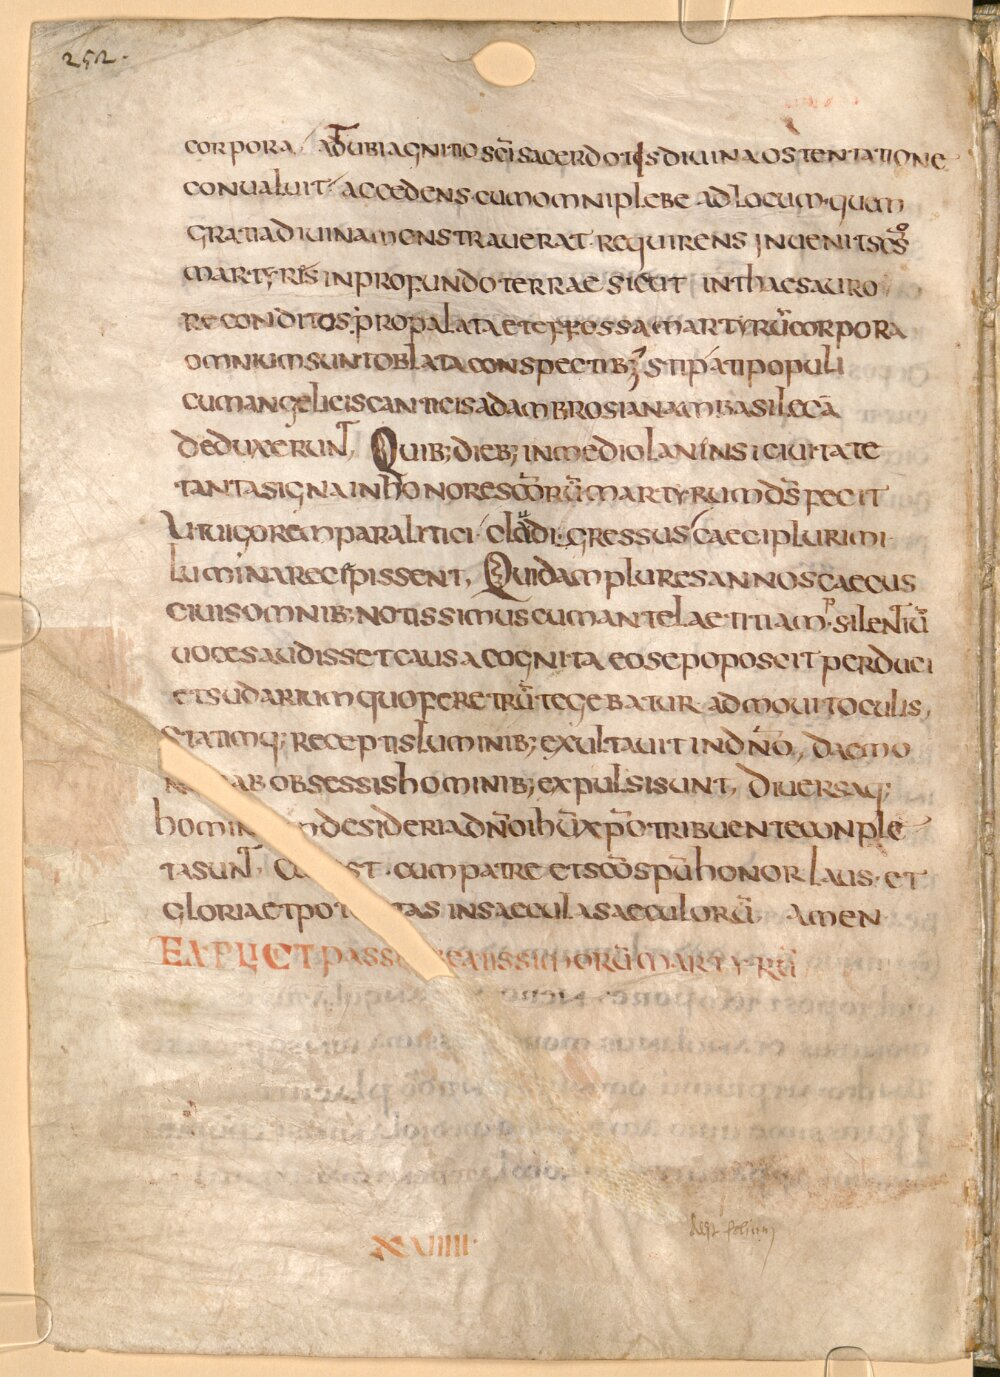 252.
corpora / ad ubi agnitio sci sacerdotis diuina ostentatione
conualuit accedens cum omni plebe ad locum quem
gratia diuina monstrauerat requirens inuenit scos
martyris in profundo terrae sicut in thaesauro
reconditos propalata et effossa martyrū corpora
omnium sunt oblata conspectib; stipati populi
cum angelicis canticis ad ambrosianam basilecā
deduxerunt, Quib; dieb; in mediolaninsi ciuitate
tanta signa in honore scōrū martyrum ds fecit
ut uigorem paralitici claudi gressus caeci plurimi
lumina recipissent, Quidam plures annos caecus
ciuis omnib; notissimus cum antelaetitiam silentiū
uoces audisset causa cognita eo se poposcit perduci
et sudarium quo feretrū tegebatur admouit oculis,
statimq; receptis luminib; exultauit in dn̄o, daemo
ab obsessis hominib; expulsi sunt, diuersaq;
homin desideria dn̄o ihū xp̄o tribuente conple
ta sunt cum patre et scō sp̄u honor laus et
gloria et potestas in saecula saeculorū amen
EXPLICIT passio beatissimorū martyrū
XVIIII
deest folium